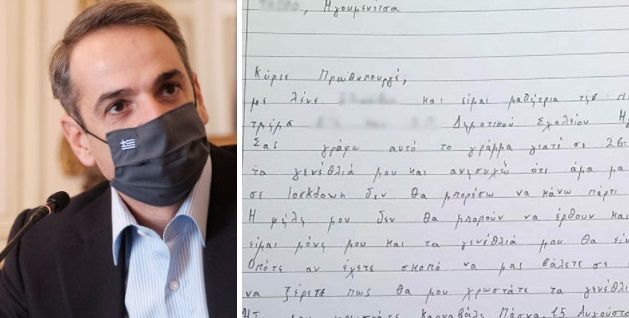 , Ηγουμενίτσα
Κύριε Πρωθυπουργέ,
με λένε και είμαι μαθήτρια της
Δημοτικού Σχολείου
Σας γράφω αυτό το γράμμα γιατί σε 26-
τα γενέθλιά μου και ανησυχώ ότι άμα μα
σε lockdown δεν θα μπορέσω να κάνω πάρτι
Η φίλες μου δεν θα μπορούν να έρθουν και
είμαι μόνη μου και τα γενέθλιά μου θα είν
Οπότε αν έχετε σκοπό να μας βάλετε σε
να ξέρετε πως θα μου χρωστάτε τα γενέθλ
Καρναβάλι Πάσχα 15 Αυγούστο